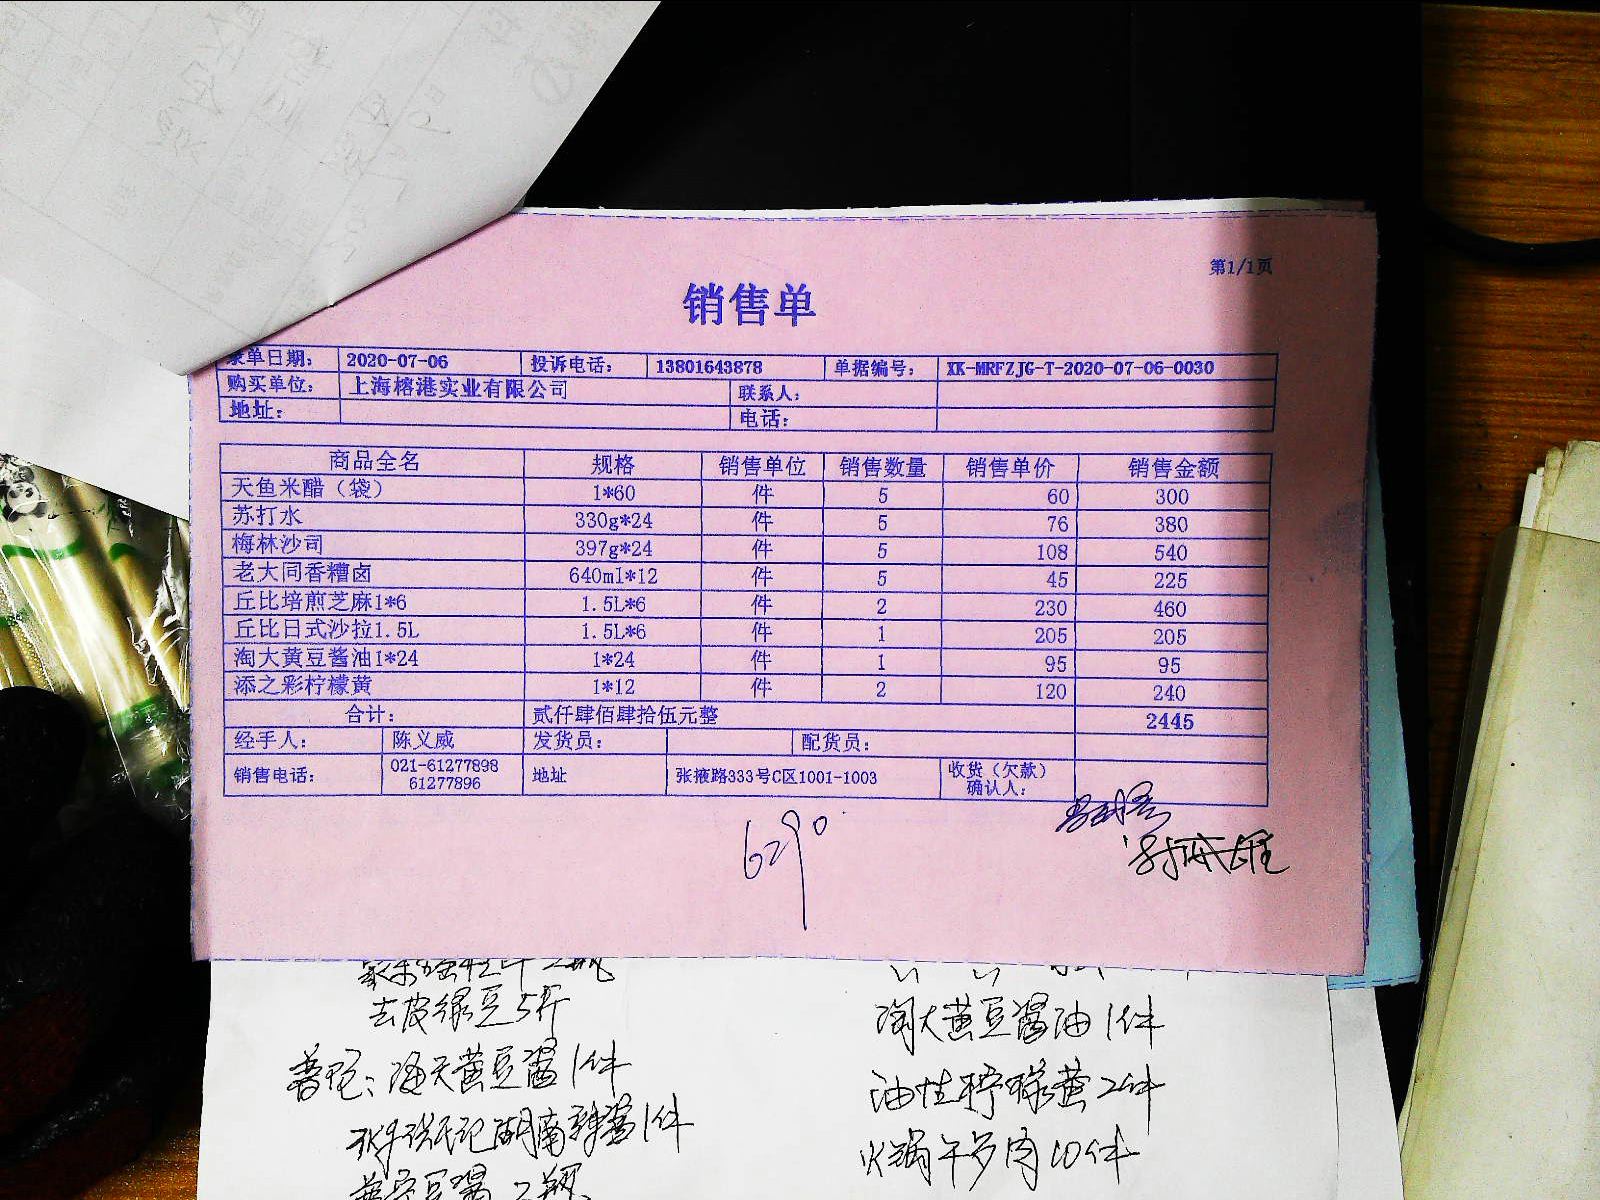 第1/1页
销售单
录单日期: 2020-07-06 投诉电话: 13801643878 单据编号: XK-MRFZJG-T-2020-07-06-0030
购买单位: 上海榕港实业有限公司 联系人:
地址: 电话:
商品全名 规格 销售单位 销售数量 销售单价 销售金额
天鱼米醋(袋) 1*60 件 5 60 300
苏打水 330g*24 件 5 76 380
梅林沙司 397g*24 件 5 108 540
老大同香糟卤 640ml*12 件 5 45 225
丘比培煎芝麻1*6 1.5L*6 件 2 230 460
丘比日式沙拉1.5L 1.5L*6 件 1 205 205
淘大黄豆酱油1*24 1*24 件 1 95 95
添之彩柠檬黄 1*12 件 2 120 240
合计: 贰仟肆佰肆拾伍元整 2445
经手人: 陈义威 发货员: 配货员:
销售电话: 021-61277898 61277896 地址 张掖路333号C区1001-1003 收货(欠款)确认人:
6290
去皮绿豆5斤
淘大黄豆酱油1件
海天黄豆酱1件
油性柠檬黄2件
湖南辣酱1件
10件